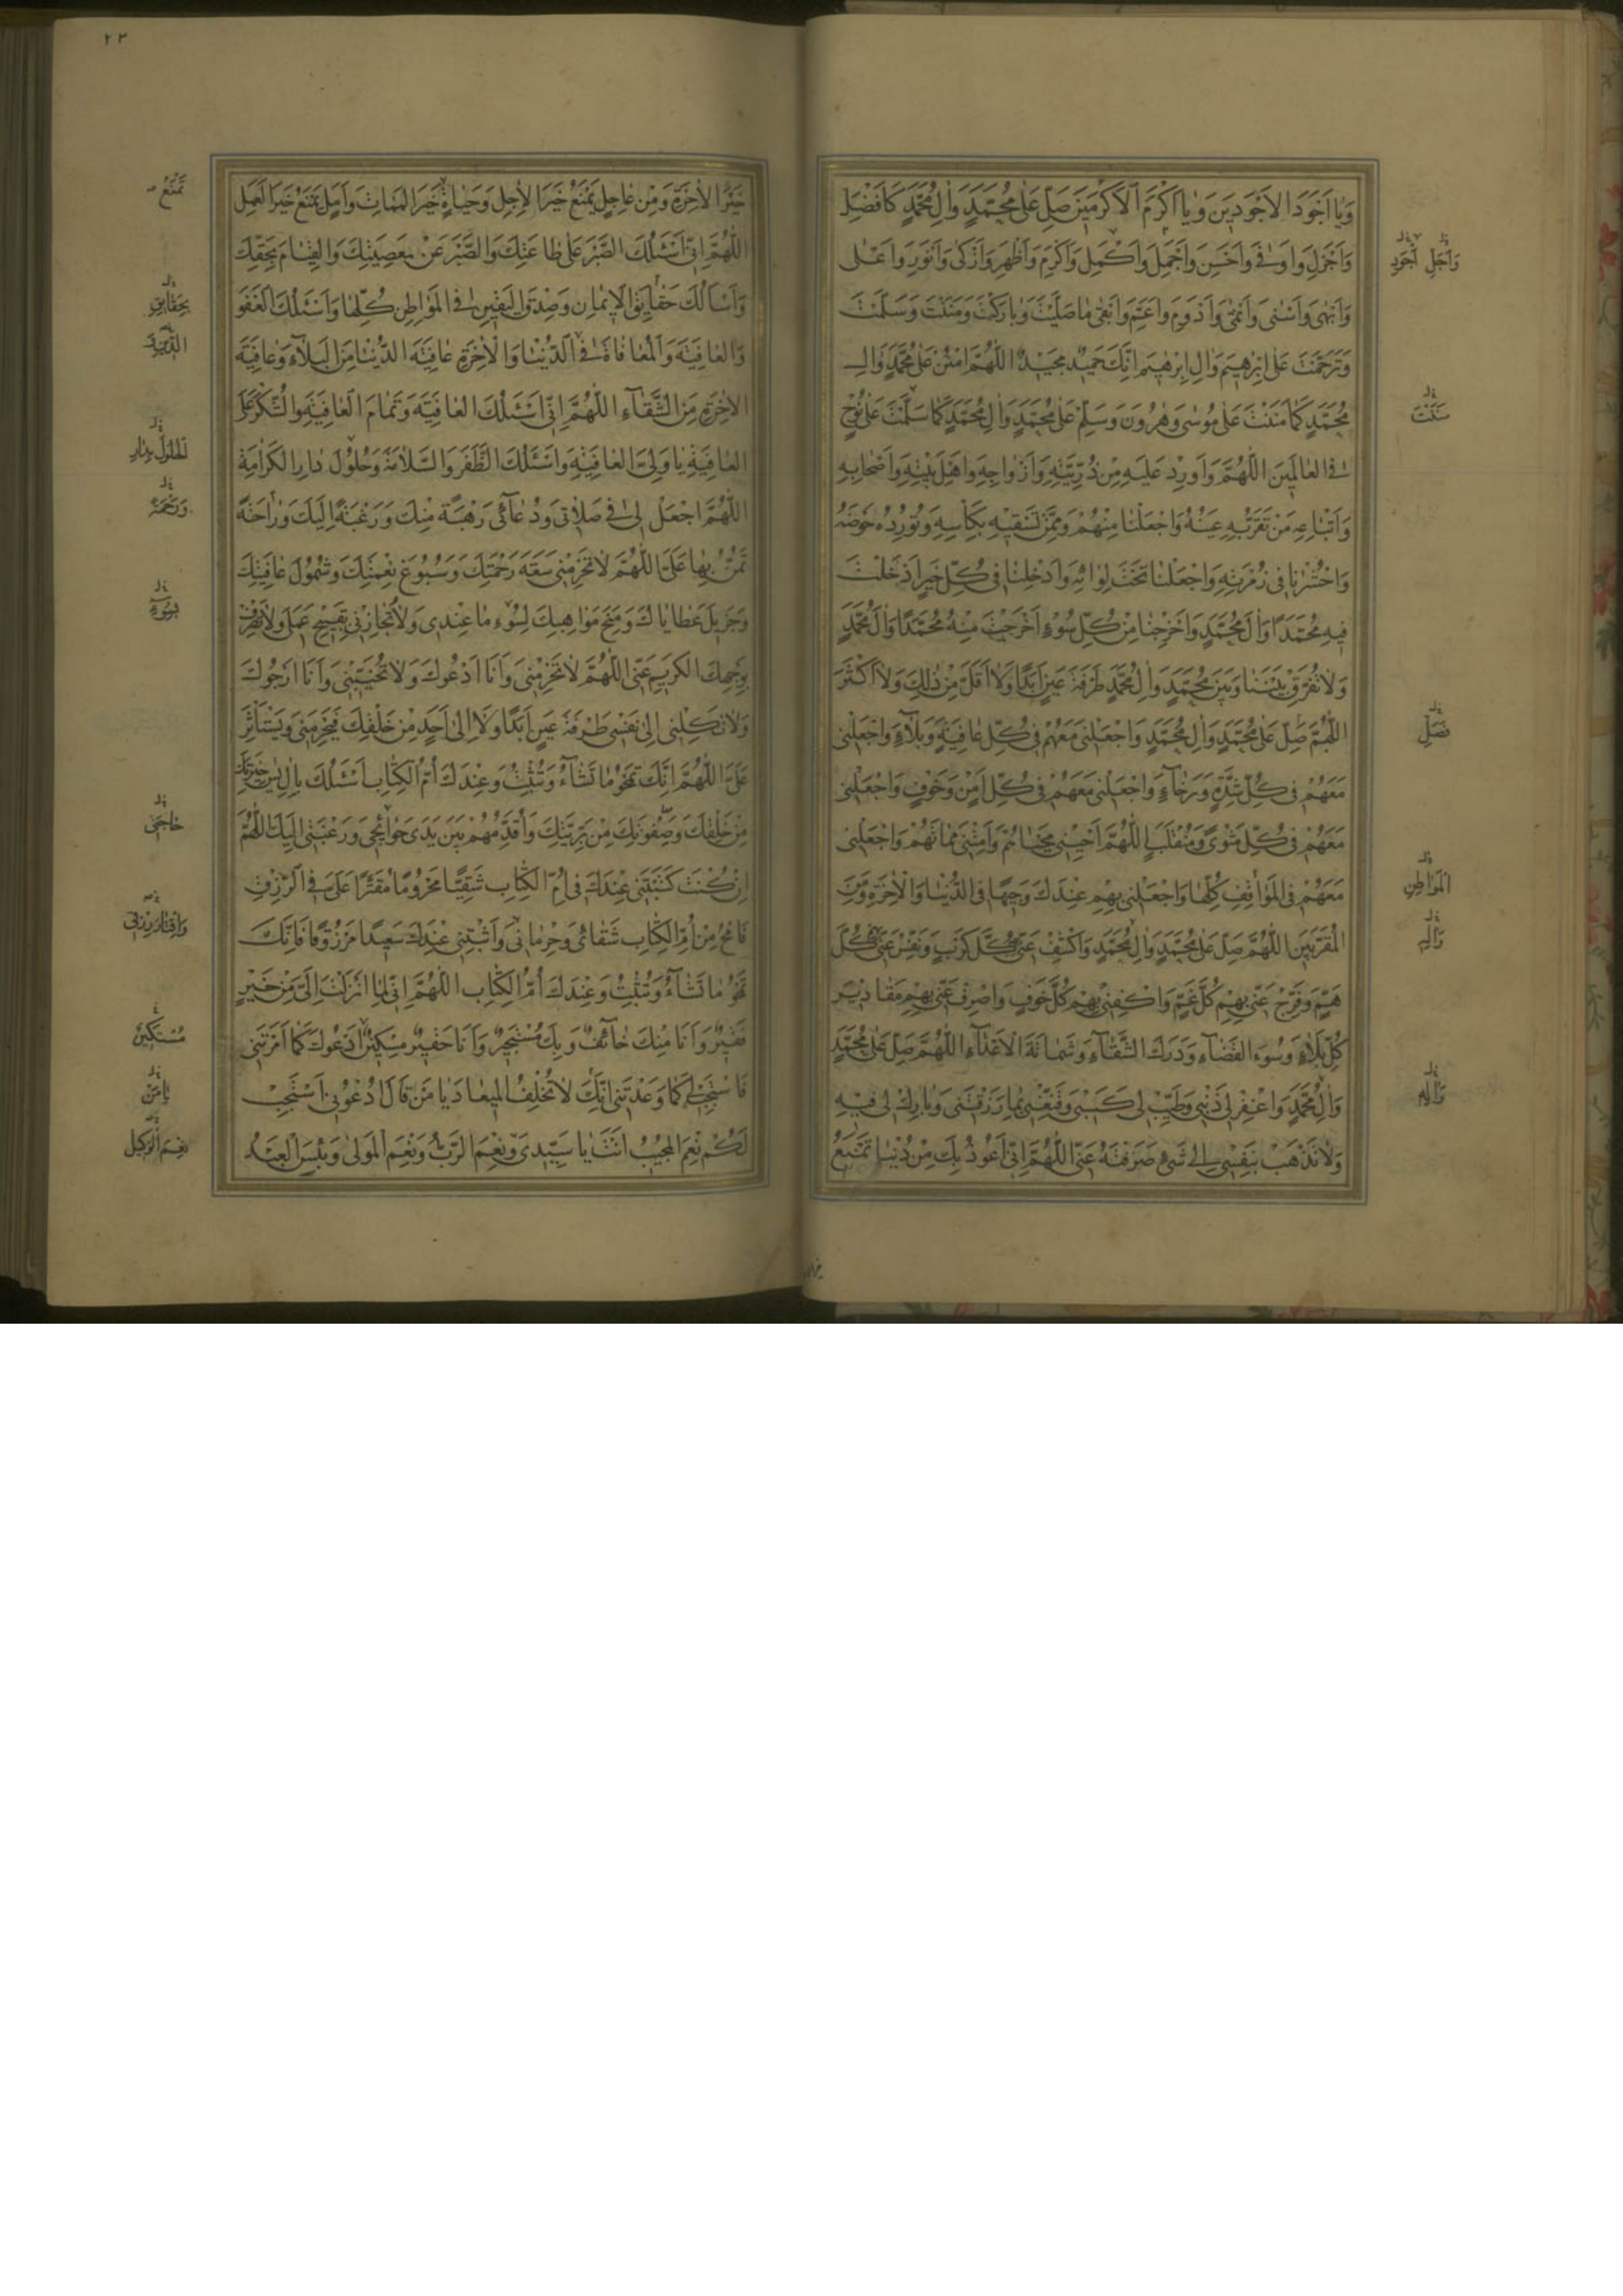 وَيَا اَجْوَدَ الْاَجْوَدِينَ وَيَا اَكْرَمَ الْاَكْرَمِينَ صَلِّ عَلٰى مُحَمَّدٍ وَاٰلِ مُحَمَّدٍ كَاَفْضَلِ
وَاَجْزَلِ وَاَوْفٰى وَاَحْسَنِ وَاَجْمَلِ وَاَكْمَلِ وَاَكْرَمِ وَاَطْهَرِ وَاَزْكٰى وَاَنْوَرِ وَاَعْلٰى
وَاَبْهٰى وَاَسْنٰى وَاَنْمٰى وَاَدْوَمِ وَاَعَمِّ وَاَبْقٰى مَا صَلَّيْتَ وَبَارَكْتَ وَمَنَنْتَ وَسَلَّمْتَ
وَتَرَحَّمْتَ عَلٰى اِبْرٰهِيمَ وَاٰلِ اِبْرٰهِيمَ اِنَّكَ حَمِيدٌ مَجِيدٌ اللّٰهُمَّ امْنُنْ عَلٰى مُحَمَّدٍ وَاٰلِ
مُحَمَّدٍ كَمَا مَنَنْتَ عَلٰى مُوسٰى وَهٰرُونَ وَسَلِّمْ عَلٰى مُحَمَّدٍ وَاٰلِ مُحَمَّدٍ كَمَا سَلَّمْتَ عَلٰى نُوحٍ
فِى الْعَالَمِينَ اللّٰهُمَّ وَاَوْرِدْ عَلَيْهِ مِنْ ذُرِّيَّتِهِ وَاَزْوَاجِهِ وَاَهْلِ بَيْتِهِ وَاَصْحَابِهِ
وَاَتْبَاعِهِ مَنْ تَقَرُّ بِهِ عَيْنُهُ وَاجْعَلْنَا مِنْهُمْ وَمِمَّنْ تَسْقِيهِ بِكَاْسِهِ وَتُورِدُهُ حَوْضَهُ
وَاحْشُرْنَا فِى زُمْرَتِهِ وَاجْعَلْنَا تَحْتَ لِوَائِهِ وَاَدْخِلْنَا فِى كُلِّ خَيْرٍ اَدْخَلْتَ
فِيهِ مُحَمَّدًا وَاٰلَ مُحَمَّدٍ وَاَخْرِجْنَا مِنْ كُلِّ سُوءٍ اَخْرَجْتَ مِنْهُ مُحَمَّدًا وَاٰلَ مُحَمَّدٍ
وَلَا تُفَرِّقْ بَيْنَنَا وَبَيْنَ مُحَمَّدٍ وَاٰلِ مُحَمَّدٍ طَرْفَةَ عَيْنٍ اَبَدًا وَلَا اَقَلَّ مِنْ ذٰلِكَ وَلَا اَكْثَرَ
اللّٰهُمَّ صَلِّ عَلٰى مُحَمَّدٍ وَاٰلِ مُحَمَّدٍ وَاجْعَلْنِى مَعَهُمْ فِى كُلِّ عَافِيَةٍ وَبَلَاءٍ وَاجْعَلْنِى
مَعَهُمْ فِى كُلِّ شِدَّةٍ وَرَخَاءٍ وَاجْعَلْنِى مَعَهُمْ فِى كُلِّ اَمْنٍ وَخَوْفٍ وَاجْعَلْنِى
مَعَهُمْ فِى كُلِّ مَثْوًى وَمُنْقَلَبٍ اللّٰهُمَّ اَحْيِنِى مَحْيَاهُمْ وَاَمِتْنِى مَمَاتَهُمْ وَاجْعَلْنِى
مَعَهُمْ فِى الْمَوَاقِفِ كُلِّهَا وَاجْعَلْنِى بِهِمْ عِنْدَكَ وَجِيهًا فِى الدُّنْيَا وَالْاٰخِرَةِ وَمِنَ
الْمُقَرَّبِينَ اللّٰهُمَّ صَلِّ عَلٰى مُحَمَّدٍ وَاٰلِ مُحَمَّدٍ وَاكْشِفْ عَنِّى بِهِمْ كُلَّ كَرْبٍ وَنَفِّسْ عَنِّى بِهِمْ كُلَّ
هَمٍّ وَفَرِّجْ عَنِّى بِهِمْ كُلَّ غَمٍّ وَاكْفِنِى بِهِمْ كُلَّ خَوْفٍ وَاصْرِفْ عَنِّى بِهِمْ مَقَادِيرَ
كُلِّ بَلَاءٍ وَسُوءَ الْقَضَاءِ وَدَرَكَ الشَّقَاءِ وَشَمَاتَةَ الْاَعْدَاءِ اللّٰهُمَّ صَلِّ عَلٰى مُحَمَّدٍ
وَاٰلِ مُحَمَّدٍ وَاغْفِرْ لِى ذَنْبِى وَطَيِّبْ لِى كَسْبِى وَقَنِّعْنِى بِمَا رَزَقْتَنِى وَبَارِكْ لِى فِيهِ
وَلَا تَذْهَبْ بِنَفْسِى اِلٰى شَىْءٍ صَرَفْتَهُ عَنِّى اللّٰهُمَّ اِنِّى اَعُوذُ بِكَ مِنْ دُنْيَا تَمْنَعُ
وَاَجَلِّ اَجْوَدِ
مَنَنْتَ
فَصَلِّ
الْمَوَاطِنِ
وَاٰلِهِ
وَاٰلِهِ
٢٣
خَيْرَ الْاٰخِرَةِ وَمِنْ عَاجِلٍ يَمْنَعُ خَيْرَ الْاٰجِلِ وَحَيَاةٍ خَيْرَ الْمَمَاتِ وَاَمَلٍ يَمْنَعُ خَيْرَ الْعَمَلِ
اللّٰهُمَّ اِنِّى اَسْئَلُكَ الصَّبْرَ عَلٰى طَاعَتِكَ وَالصَّبْرَ عَنْ مَعْصِيَتِكَ وَالْقِيَامَ بِحَقِّكَ
وَاَسْاَلُكَ حَقَايِقَ الْاِيمَانِ وَصِدْقَ الْيَقِينِ فِى الْمَوَاطِنِ كُلِّهَا وَاَسْئَلُكَ الْعَفْوَ
وَالْعَافِيَةَ وَالْمُعَافَاةَ فِى الدُّنْيَا وَالْاٰخِرَةِ عَافِيَةَ الدُّنْيَا مِنَ الْبَلَاءِ وَعَافِيَةَ
الْاٰخِرَةِ مِنَ الشَّقَاءِ اللّٰهُمَّ اِنِّى اَسْئَلُكَ الْعَافِيَةَ وَتَمَامَ الْعَافِيَةِ وَالشُّكْرَ عَلَى
الْعَافِيَةِ يَا وَلِىَّ الْعَافِيَةِ وَاَسْئَلُكَ الظَّفَرَ وَالسَّلَامَةَ وَحُلُولَ دَارِ الْكَرَامَةِ
اللّٰهُمَّ اجْعَلْ لِى فِى صَلَاتِى وَدُعَائِى رَهْبَةً مِنْكَ وَرَغْبَةً اِلَيْكَ وَرَاحَةً
تَمُنُّ بِهَا عَلَىَّ اللّٰهُمَّ لَا تَحْرِمْنِى سَعَةَ رَحْمَتِكَ وَسُبُوغَ نِعْمَتِكَ وَشُمُولَ عَافِيَتِكَ
وَجَزِيلَ عَطَايَاكَ وَمِنَحَ مَوَاهِبِكَ لِسُوءِ مَا عِنْدِى وَلَا تُجَازِنِى بِقَبِيحِ عَمَلِى وَلَا تَصْرِفْ
بِوَجْهِكَ الْكَرِيمِ عَنِّى اللّٰهُمَّ لَا تَحْرِمْنِى وَاَنَا اَدْعُوكَ وَلَا تُخَيِّبْنِى وَاَنَا اَرْجُوكَ
وَلَا تَكِلْنِى اِلٰى نَفْسِى طَرْفَةَ عَيْنٍ اَبَدًا وَلَا اِلٰى اَحَدٍ مِنْ خَلْقِكَ فَيَحْرِمَنِى وَيَسْتَاْثِرَ
عَلَىَّ اللّٰهُمَّ اِنَّكَ تَمْحُو مَا تَشَاءُ وَتُثْبِتُ وَعِنْدَكَ اُمُّ الْكِتَابِ اَسْئَلُكَ بِاٰلِ يٰسٓ خِيَرَتِكَ
مِنْ خَلْقِكَ وَصَفْوَتِكَ مِنْ بَرِيَّتِكَ وَاُقَدِّمُهُمْ بَيْنَ يَدَىْ حَوَائِجِى وَرَغْبَتِى اِلَيْكَ اللّٰهُمَّ
اِنْ كُنْتَ كَتَبْتَنِى عِنْدَكَ فِى اُمِّ الْكِتَابِ شَقِيًّا مَحْرُومًا مُقَتَّرًا عَلَىَّ فِى الرِّزْقِ
فَامْحُ مِنْ اُمِّ الْكِتَابِ شَقَائِى وَحِرْمَانِى وَاَثْبِتْنِى عِنْدَكَ سَعِيدًا مَرْزُوقًا فَاِنَّكَ
تَمْحُو مَا تَشَاءُ وَتُثْبِتُ وَعِنْدَكَ اُمُّ الْكِتَابِ اللّٰهُمَّ اِنِّى لِمَا اَنْزَلْتَ اِلَىَّ مِنْ خَيْرٍ
فَقِيرٌ وَاَنَا مِنْكَ خَائِفٌ وَبِكَ مُسْتَجِيرٌ وَاَنَا حَقِيرٌ مِسْكِينٌ اَدْعُوكَ كَمَا اَمَرْتَنِى
فَاسْتَجِبْ لِى كَمَا وَعَدْتَنِى اِنَّكَ لَا تُخْلِفُ الْمِيعَادَ يَا مَنْ قَالَ ادْعُونِى اَسْتَجِبْ
لَكُمْ نِعْمَ الْمُجِيبُ اَنْتَ يَا سَيِّدِى وَنِعْمَ الرَّبُّ وَنِعْمَ الْمَوْلٰى وَبِئْسَ الْعَبْدُ
تَمْنَعُ
بِحَقَايِقِ
الْحُلُولَ بِدَارِ
وَرَحْمَةً
حَاجَتِى
وَاِقْتَارَ رِزْقِى
مُسْتَكِينٌ
يَا مَنْ
نِعْمَ الْوَكِيل